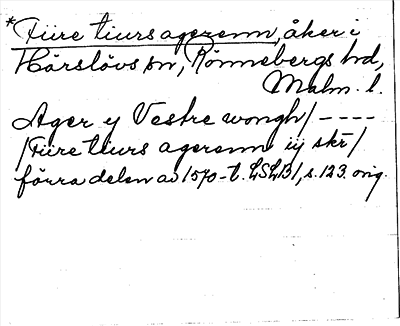 *Fiire tiurs agerenn, åker i
Härslövs sn, Rönnebergs hd,
Malm. l.
Ager y Vestre wongh/ ----
/Fiire tiurs agerenn iij skr/
förra delen av 1570-t. LSLB1, s. 123. orig.